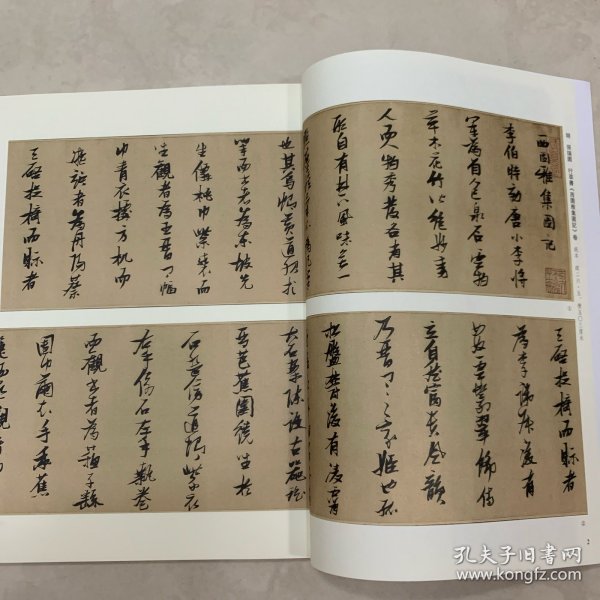 明 張瑞圖 行草書《西園雅集圖記》卷
西園雅集圖記
李伯時効唐小李將
軍為着色泉石雲物
草木花竹皆絕妙動
人而人物秀發各肖其
形自有林下風味無一
也其烏帽黃道服捉
筆而書者為東坡先
生僊桃巾紫裘而
坐觀者為王晉卿幅
巾青衣據方机而
凝竚者為丹陽蔡
天啟捉椅而眎者
①
天啟捉椅而眎者
為李端叔後有
女奴雲鬟翠飾侍
立自然富貴風韻
乃晉卿之家姬也孤
松盤欝後有凌霄
大石案陳設古器瑤
琴芭蕉圍繞坐於
石盤傍道帽紫衣
右手倚石左手執卷
而觀書者為蘇子繇
團巾繭衣手秉蕉
②
2
孔夫子旧书网
www.kongfz.com